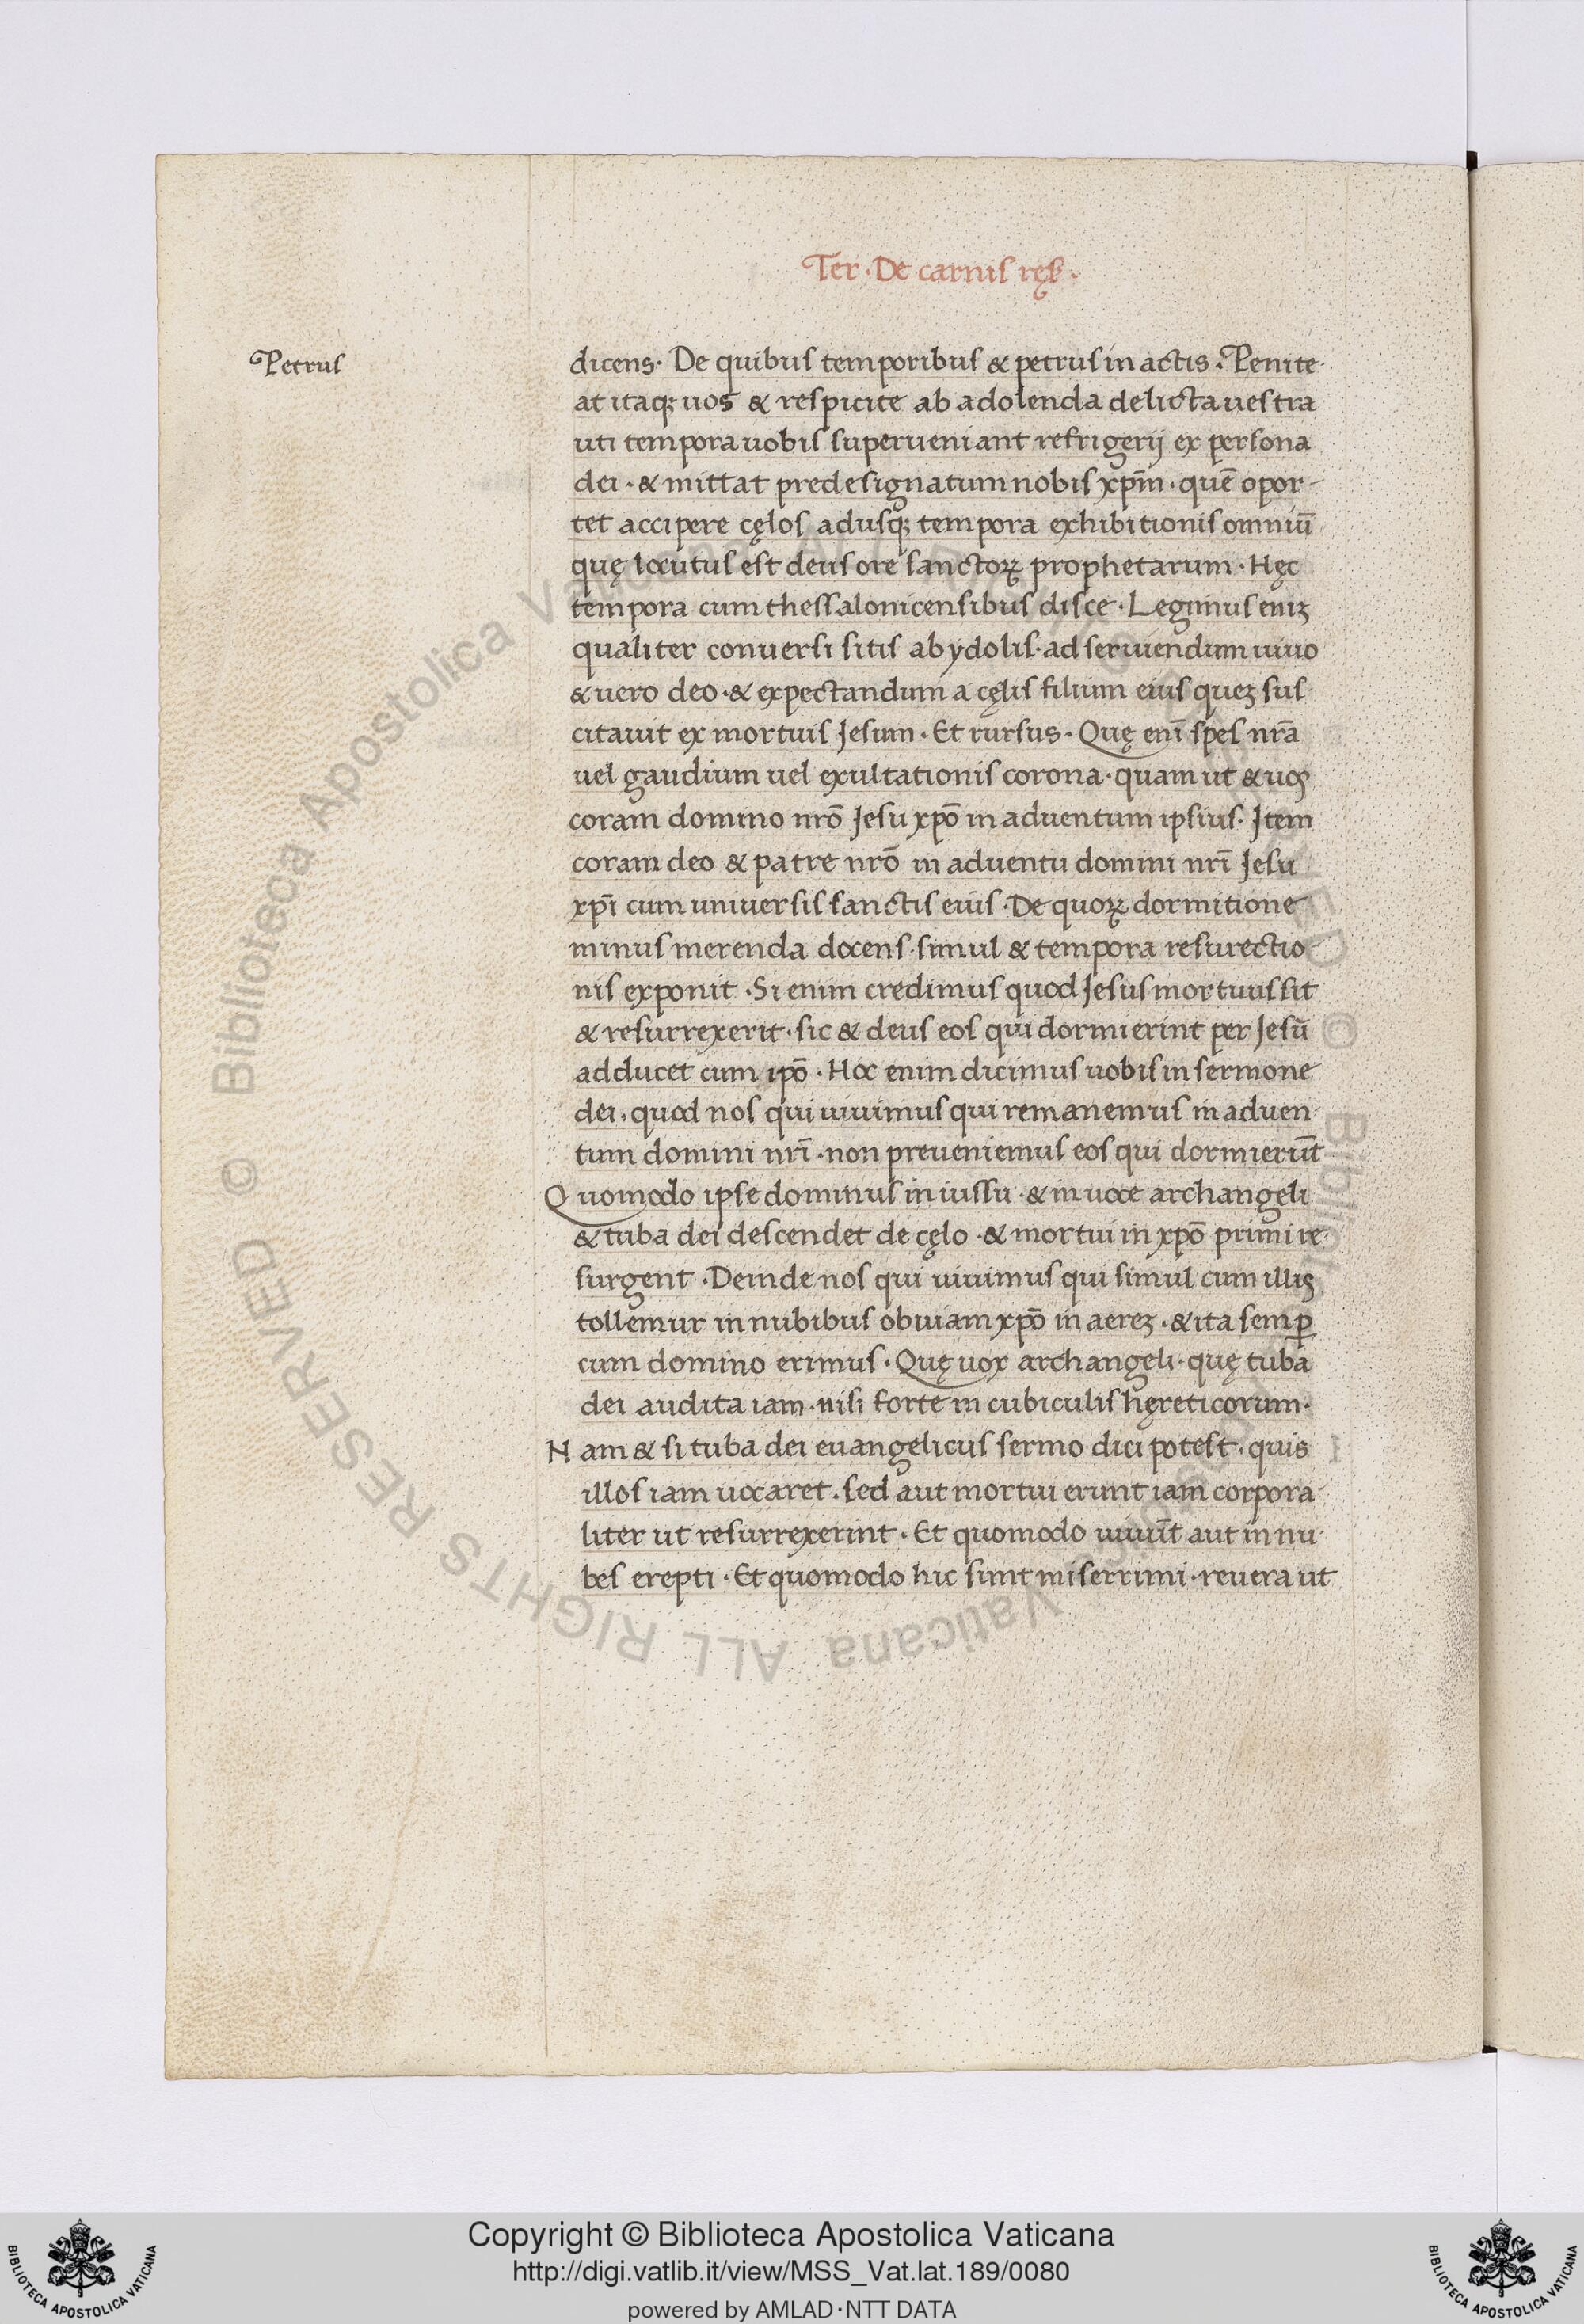 Ter · De carnis ręſ .
Petrus
dicens · De quibus temporibus & petrus in actis . Penite-
at itaq; uos & respicite ab adolenda delicta uestra
uti tempora uobis superueniant refrigerij ex persona
dei · & mittat predesignatum nobis xp̄m · quē opor-
tet accipere cęlos adusq; tempora exhibitionis omniū
quę locutus est deus ore sanctoꝝ prophetarum · Hęc
tempora cum thessalonicensibus disce · Legimus eniꝫ
qualiter conuersi sitis ab ydolis · ad seruiendum uiuo
& uero deo · & expectandum a cęlis filium eius queꝫ sus
citauit ex mortuis Jesum · Et rursus · Quę enī spes nr̄a
uel gaudium uel exultationis corona · quam ut & uos
coram domino nrō Jesu xpō in aduentum ipsius · Item
coram deo & patre nrō in aduentu domini nrī Jesu
xpī cum uniuersis sanctis eius · De quoꝝ dormitione
minus merenda docens simul & tempora resurectio-
nis exponit · Si enim credimus quod Jesus mortuus sit
& resurrexerit · sic & deus eos qui dormierint per Jesū
adducet cum ipō · Hoc enim dicimus uobis in sermone
dei . quod nos qui uiuimus qui remanemus in aduen
tum domini nrī · non preueniemus eos qui dormierūt
Quomodo ipse dominus in iussu · & in uoce archangeli
& tuba dei descendet de cęlo · & mortui in xpō primi re-
surgent · Deinde nos qui uiuimus qui simul cum illis
tollemur in nubibus obuiam xpō in aereꝫ · & ita semꝑ
cum domino erimus · Quę uox archangeli · quę tuba
dei audita iam · nisi forte in cubiculis hęreticorum ·
Nam & si tuba dei euangelicus sermo dici potest · quis
illos iam uocaret . sed aut mortui erunt iam corpora-
liter ut resurrexerint · Et quomodo uiuūt aut in nu
bes erepti · Et quomodo hic sunt miserrimi · reuera ut
Copyright © Biblioteca Apostolica Vaticana
http://digi.vatlib.it/view/MSS_Vat.lat.189/0080
powered by AMLAD·NTT DATA
BIBLIOTECA APOSTOLICA VATICANA
BIBLIOTECA APOSTOLICA VATICANA
© Biblioteca Apostolica Vaticana ALL RIGHTS RESERVED © Biblioteca Apostolica Vaticana ALL RIGHTS RESERVED